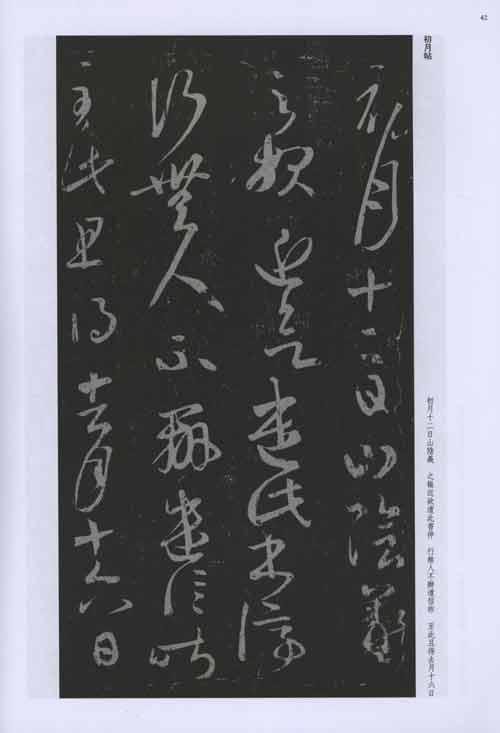 42
初月帖
初月十二日山陰羲
之報近欲遣此書停
行無人不辦遣信昨
至此且得去月十六日
初月十二日山陰羲　之報近欲遣此書停　行無人不辦遣信昨　至此且得去月十六日